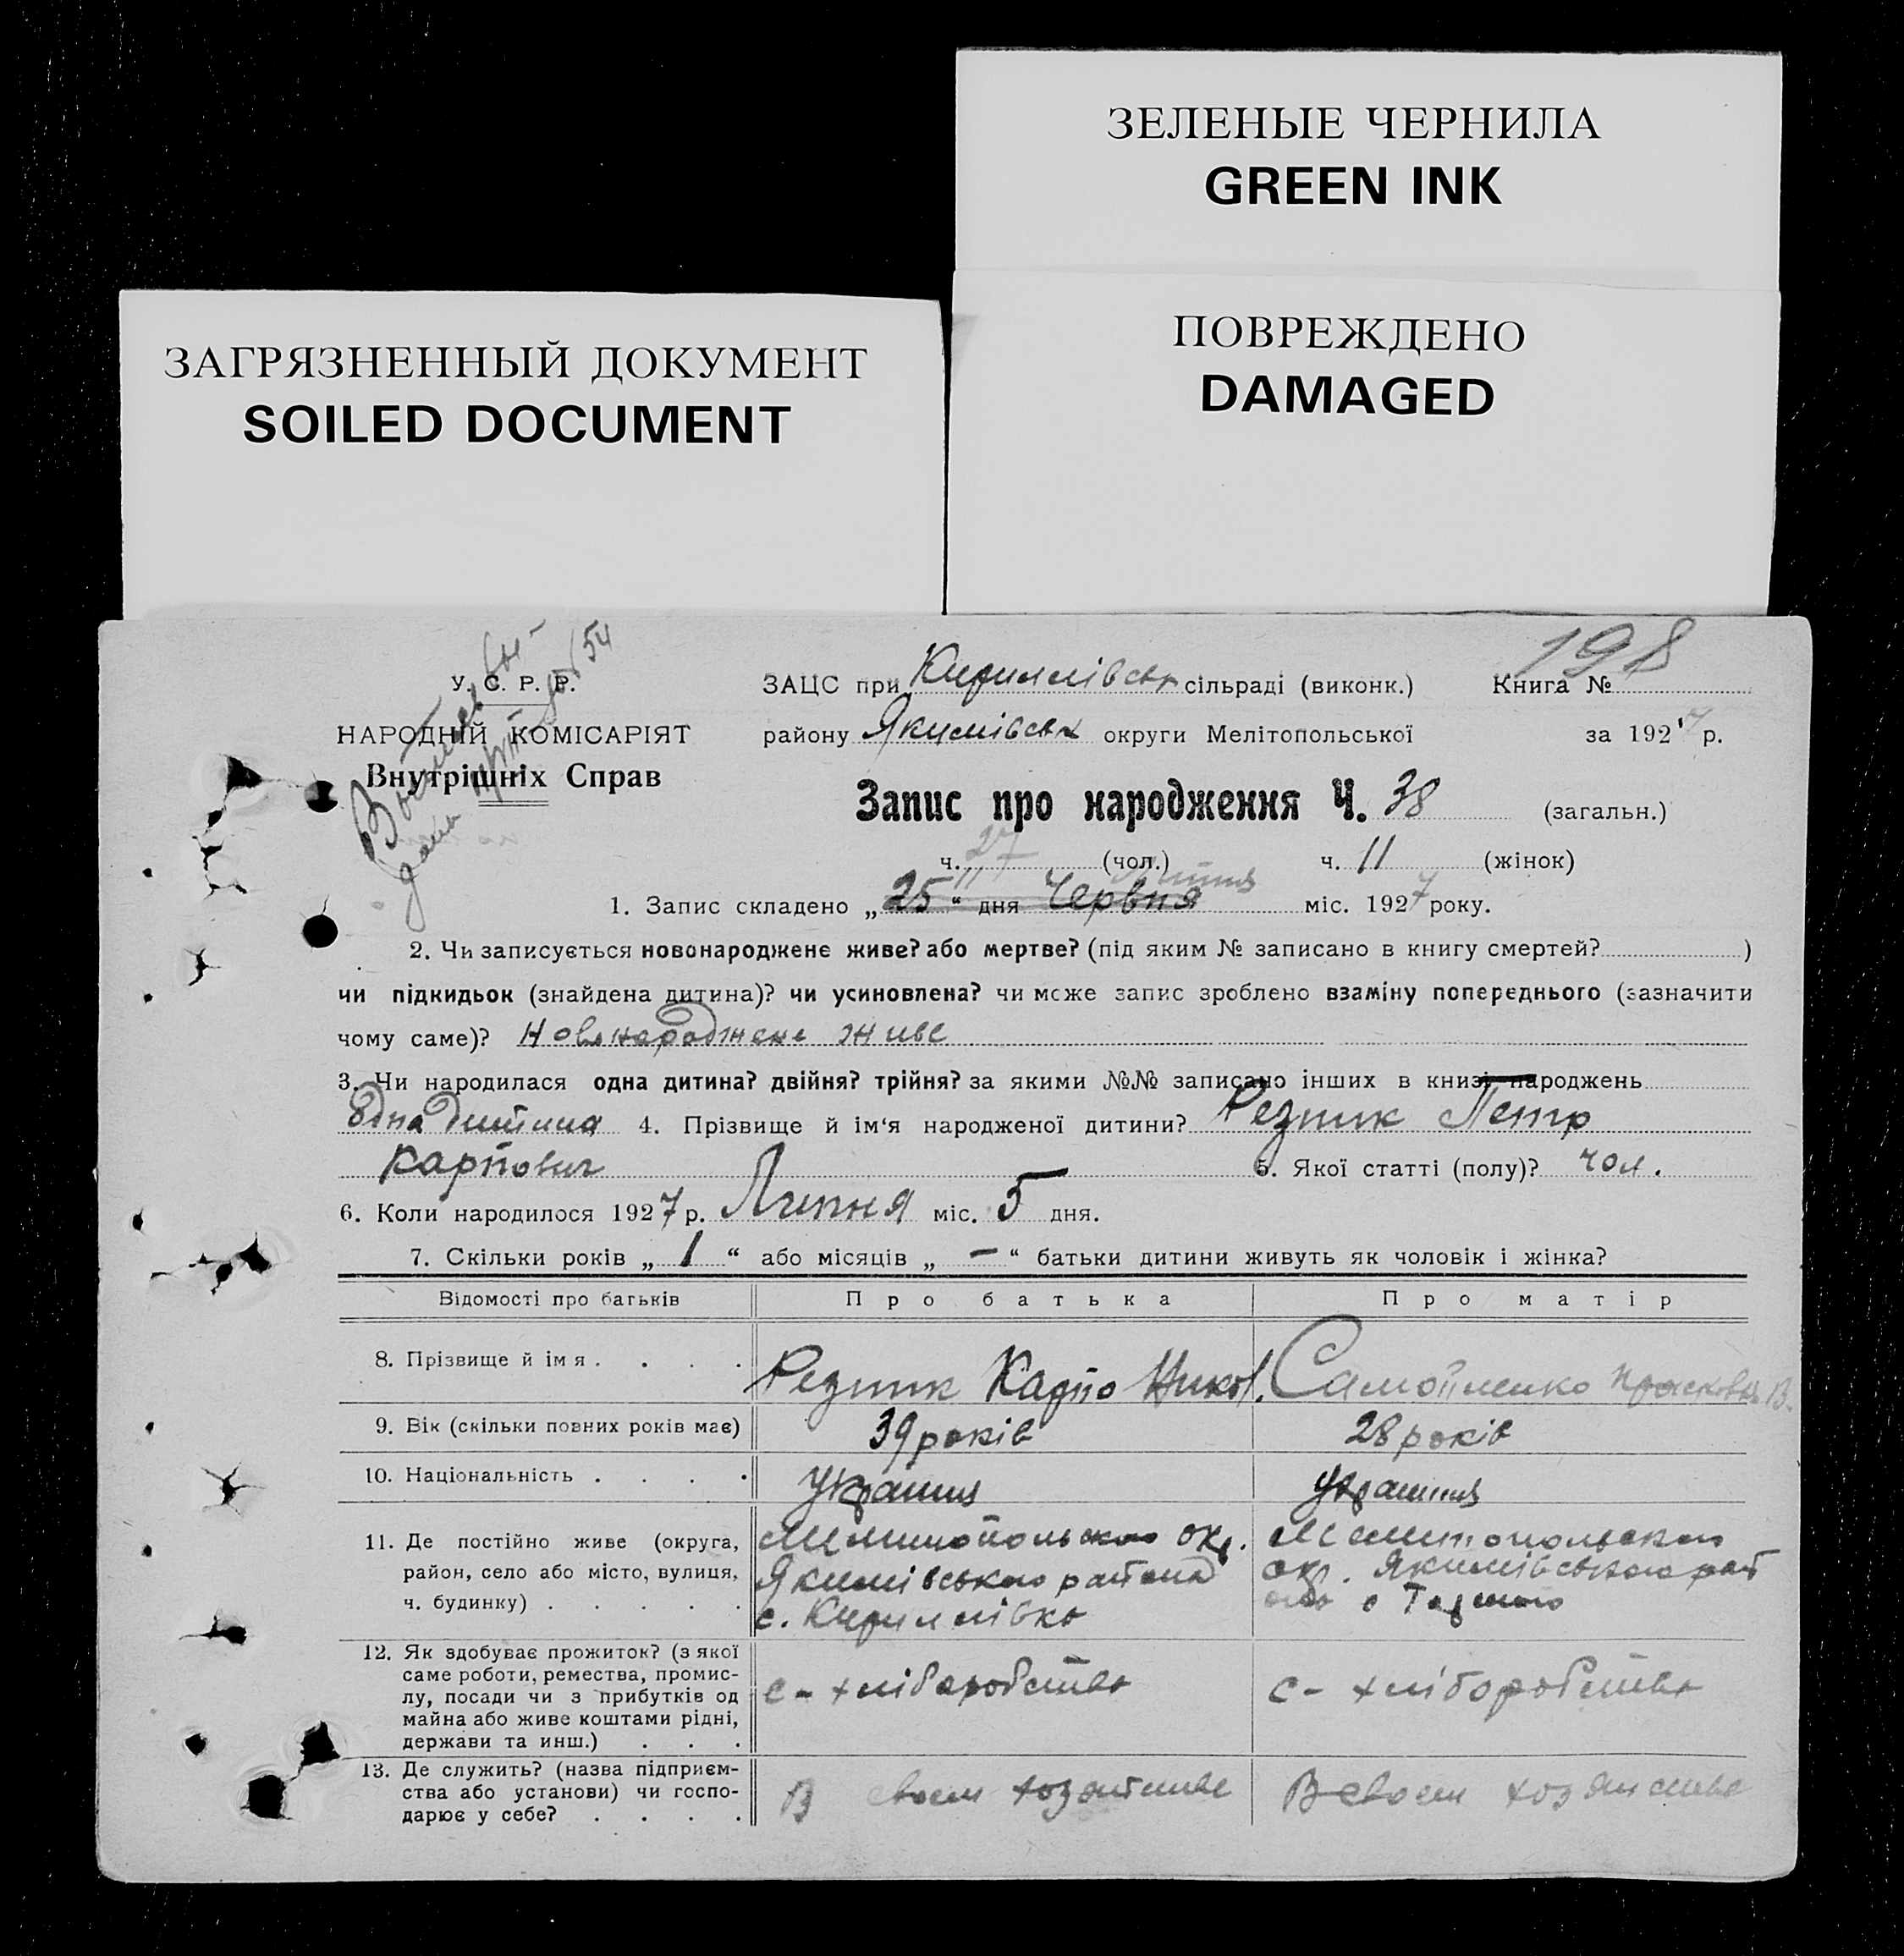 ЗЕЛЕНЫЕ ЧЕРНИЛА
GREEN INK
ПОВРЕЖДЕНО
DAMAGED
ЗАГРЯЗНЕННЫЙ ДОКУМЕНТ
SOILED DOCUMENT
198
У. С. Р. Р.
НАРОДНІЙ КОМІСАРІЯТ
Внутрішніх Справ
ЗАЦС при Кириллівськ сільраді (виконк.) Книга №
району Якимівськ округи Мелітопольської за 1927 р.
Запис про народження Ч. 38 (загальн.)
ч. 27 (чол.) ч. 11 (жінок)
1. Запис складено „25“ дня Червня міс. 1927 року.
2. Чи записується новонароджене живе? або мертве? (під яким № записано в книгу смертей? )
чи підкидьок (знайдена дитина)? чи усиновлена? чи може запис зроблено взаміну попереднього (зазначити
чому саме)? Новонароджене живе
3. Чи народилася одна дитина? двійня? трійня? за якими №№ записано інших в книзі народжень
Одна дитина 4. Прізвище й ім‘я народженої дитини? Резник Петр
Карпович 5. Якої статті (полу)? чол.
6. Коли народилося 1927 р. Липня міс. 5 дня.
7. Скільки років „ 1 “ або місяців „ — “ батьки дитини живуть як чоловік і жінка?
Відомості про батьків Про батька Про матір
8. Прізвище й імя . . . . Резник Карпо Никол. Самойленко Прасковья В.
9. Вік (скільки повних років має) 39 років 28 років
10. Національність . . . .
11. Де постійно живе (округа,
район, село або місто, вулиця,
ч. будинку) . . . . .
окр.
Якимівського района
с. Кириллівка
Мелитопольского
окр. Якимівського рай
12. Як здобуває прожиток? (з якої
саме роботи, ремества, промис-
лу, посади чи з прибутків од
майна або живе коштами рідні,
держави та инш.) . . .
с - хліборобства
с - хліборобства
13. Де служить? (назва підприєм-
ства або установи) чи госпо-
дарює у себе? . . . .
В своем хозяйстве
В своем хозяйстве